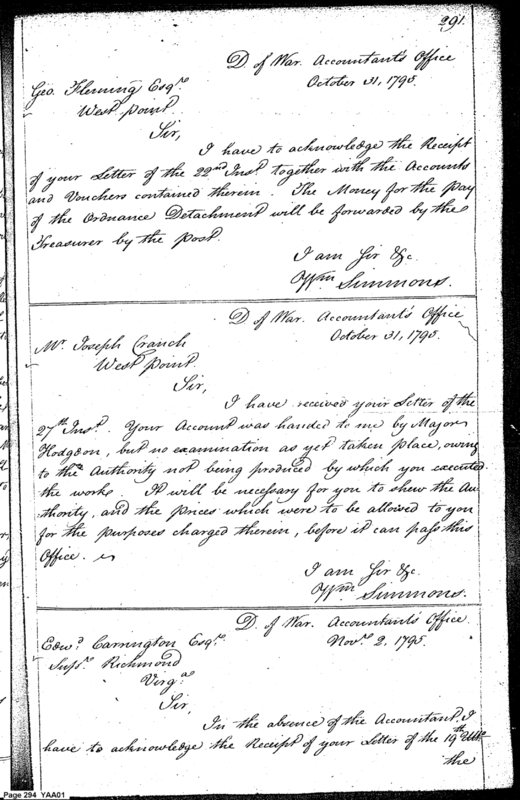 291.
D of War. Accountant's Office
October 31, 1795.
Geo. Fleming Esqre
West point
Sir,
I have to acknowledge the Receipt
of your Letter of the 22nd Inst. together with the Accounts
and Vouchers contained therein. The Money for the pay
of the Ordnance Detachment will be forwarded by the
Treasurer by the post.
I am Sir &c.
Wm Simmons.
D of War. Accountant's Office
October 31, 1795.
Mr. Joseph Cranch
West Point.
Sir,
I have received your Letter of the
27th Inst. Your Account was handed to me by Major
Hodgdon, but no examination as yet taken place, owing
to the Authority not being produced by which you executed
the works. It will be necessary for you to shew the Au-
thority, and the prices which were to be allowed to you
for the purposes charged therein, before it can pass this
Office.
I am Sir &c.
Wm Simmons.
D. of War. Accountant's Office
Novr. 2, 1795.
Edwd. Carrington Esqr.
Supr. Richmond
Virga.
Sir,
In the absence of the Accountant, I
have to acknowledge the Receipt of your Letter of the 19th Ulto
the
Page 294 YAA01